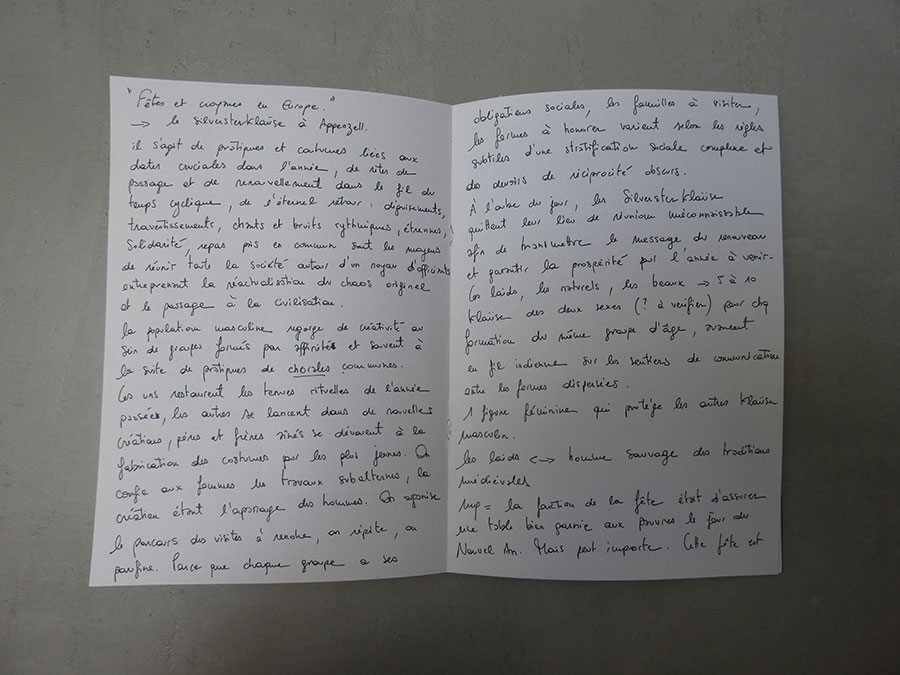 "Fêtes et croyances en Europe."
→ le Silvesterkläuse à Appenzell.
il s'agit de pratiques et coutumes liées aux
dates cruciales dans l'année, de rites de
passage et de renouvellement dans le fil du
temps cyclique, de l'éternel retour : déguisements,
travestissements, chants et bruits rythmiques, étrennes,
Solidarité, repas pris en commun sont les moyens
de réunir toute la société autour d'un noyau d'officiants
entreprenant la réactualisation du chaos originel
et le passage à la civilisation.
la population masculine regorge de créativité au
sein de groupes formés par affinités et souvent à
la suite de pratiques de chorales communes.
Les uns restaurent les tenues rituelles de l'année
passée, les autres se lancent dans de nouvelles
créations, pères et frères aînés se dévouent à la
fabrication des costumes pour les plus jeunes. On
confie aux femmes les travaux subalternes, la
création étant l'apanage des hommes. On organise
le parcours des visites à rendre, on répète, on
peaufine. Parce que chaque groupe a ses
obligations sociales, les familles à visiter,
les fermes à honorer varient selon les règles
subtiles d'une stratification sociale complexe et
des devoirs de réciprocité obscurs.
À l'aube du jour, les Silvesterkläuse
quittent leur lieu de réunion méconnaissable
afin de transmettre le message du renouveau
et garantir la prospérité pour l'année à venir.
Les laids, les naturels, les beaux → 5 à 10
kläuse des deux sexes (? à vérifier) pour chq
formation du même groupe d'âge, avancent
en fil indienne sur les sentiers de communication
entre les fermes dispersées.
1 figure féminine qui protège les autres kläuse
masculin.
les laids <—> homme sauvage des traditions
médiévales
= la fonction de la fête était d'assurer
une table bien garnie aux pauvres le jour du
Nouvel An. Mais peut importe. Cette fête est